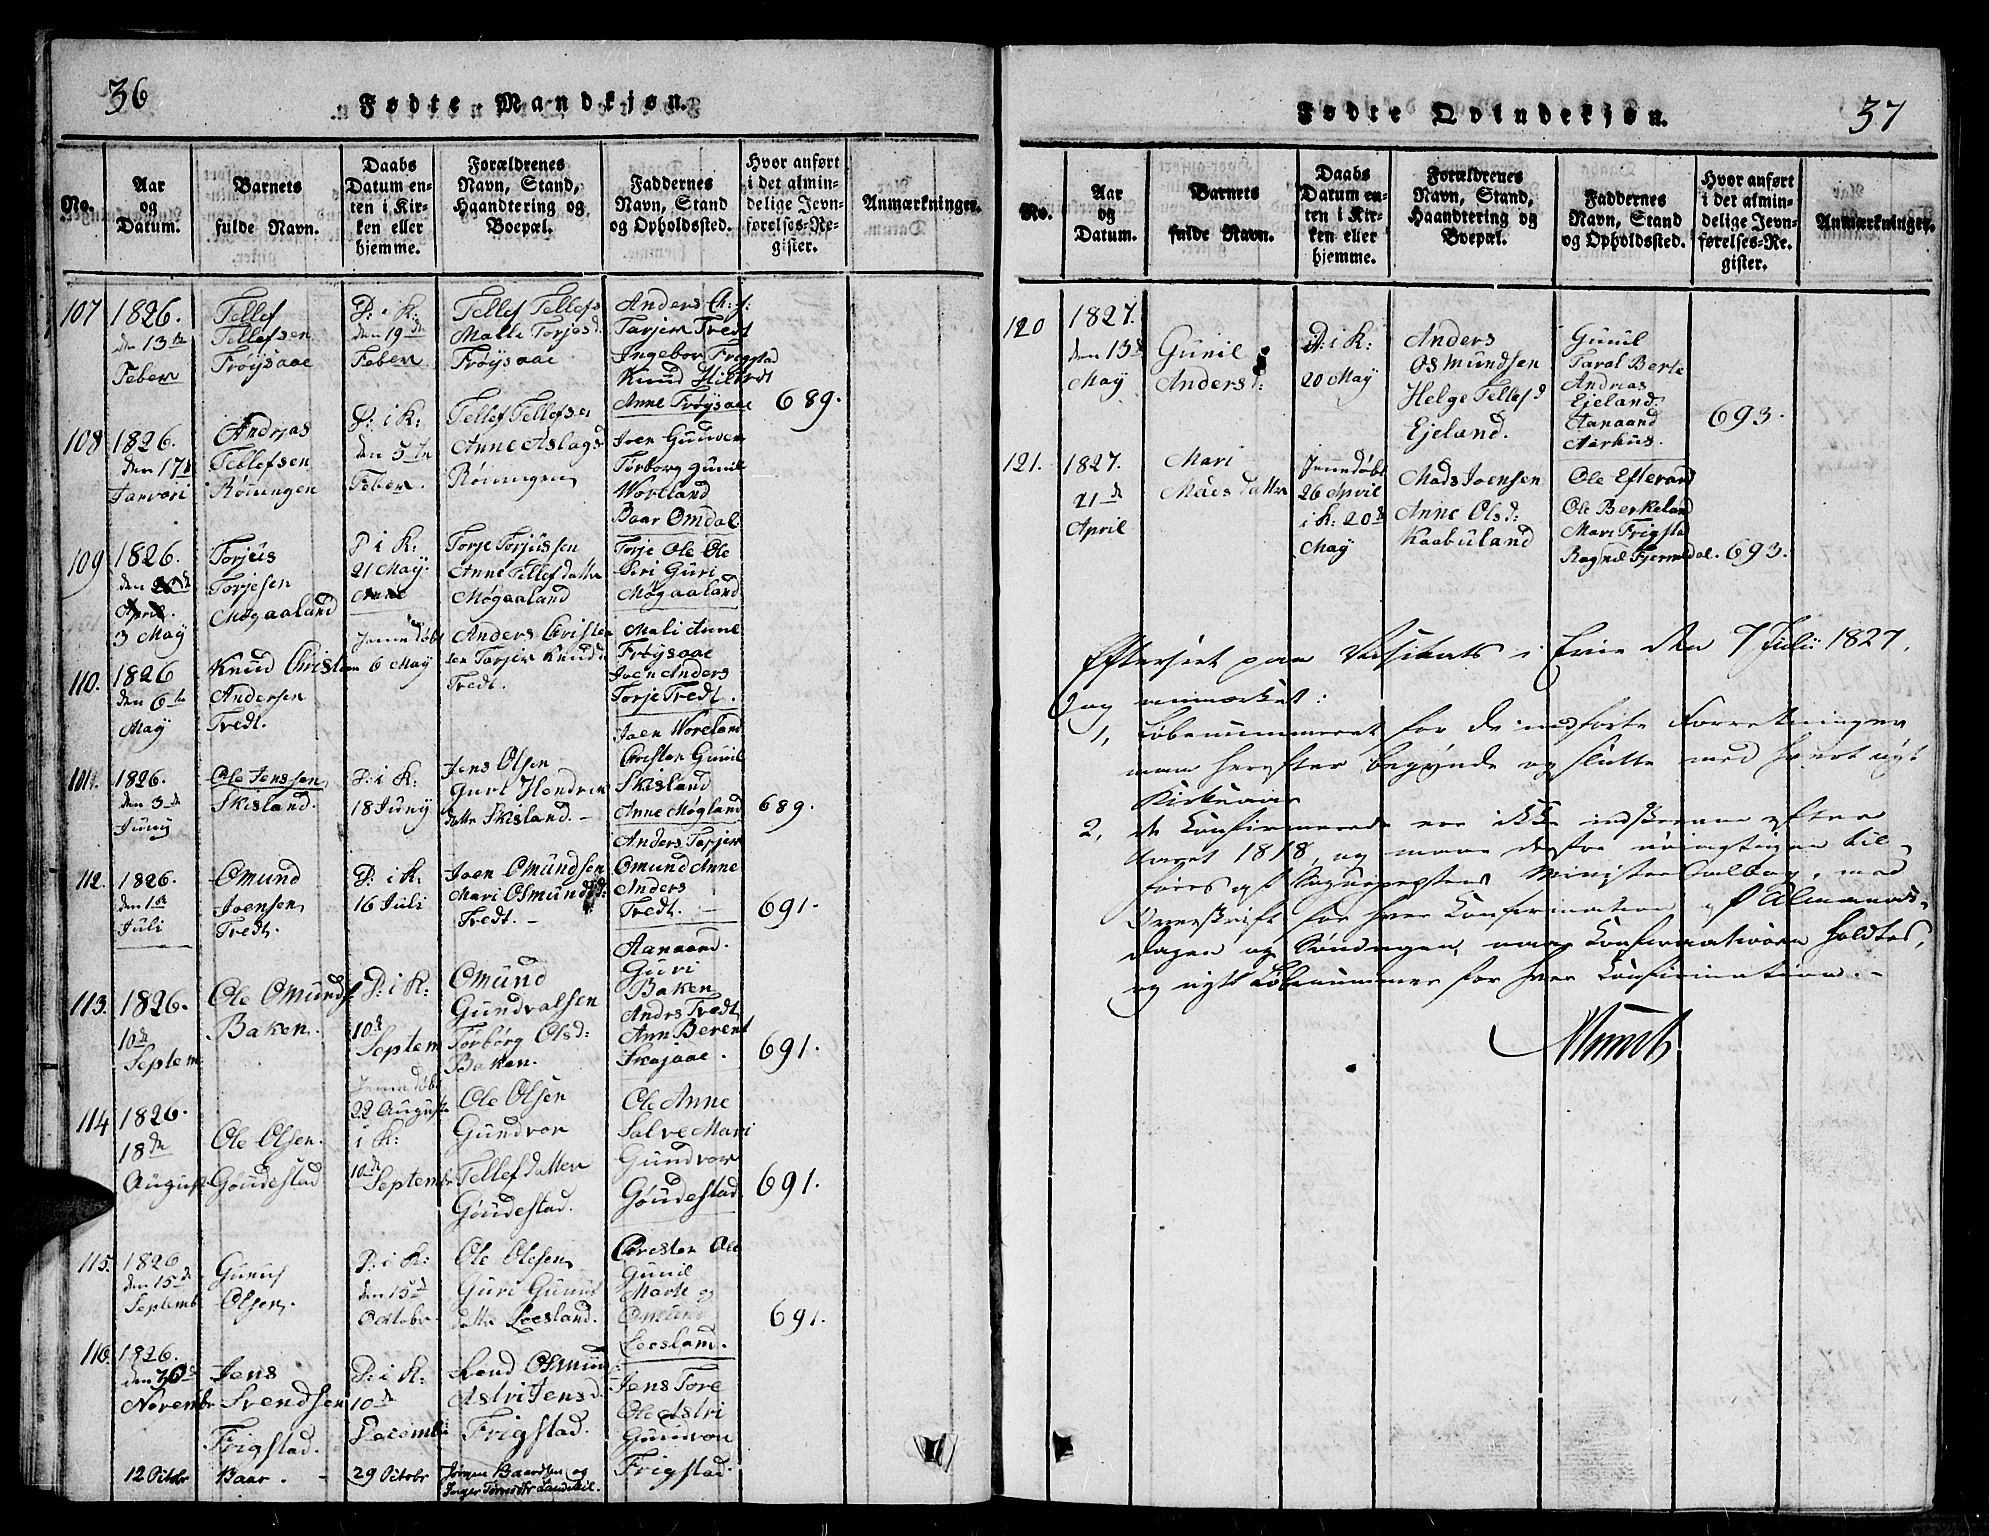 36
Fødte Mandkjøn.
No.
Aar
og
Datum.
Barnets
fulde Navn.
Daabs
Datum en-
ten i Kir-
ken eller
hjemme.
Forældrenes
Navn, Stand,
Haandtering og
Boepæl.
Faddernes
Navn, Stand
og Opholdssted.
Hvor anført
i det almin-
delige Jevn-
førelses-Re-
gister.
Anmærkninger.
107
1826.
den 13te
Feber
Tellef
Tellefsen
Frøysaae
D: i K:
den 19de
Feber
Tellef Tellefs
Malli Torjesd
Frøysaae
Anders Ch: f:
Tarjer Tredt
Ingebor Frigstad
Knud Hiltredt
Anne Frøysaae
689.
108
1826.
den 17d
Januari
Andrjas
Tellefsen
Røiningen
D: i K:
den 5te
Feber
Tellef Tellefsen
Anne Aslagsd
Røiningen
Joen Gunder
Torborg Gunil
Woreland
Baar Omdal
109
1826.
April.
3 May
Torjus
Torjesen
Møgaaland
D i K:
21 May.
Torje Torjussen
Anne Tellefdatter
Møgaaland
Torje Ole Ole
Siri Guri
Møgaaland
110.
1826
den 6te
May
Knud Christen
Andersen
Tredt.
Jemmedøbt
6 May
Anders Christen
sen Tarjer Knudd
Tredt.
Mali Anne
Frøysaae
Joen Anders
Torje Tredt.
1826.
den 3de
Juny
Ole Jenssen
Skisland.
D: i K:
18 Juny
Jens Olsen
Guri Hendrik
datter Skisland. –
Joen Woreland
Christen Gunil
Skisland
Anne Møgland
689.
112.
1826.
den 1ste
Juli
Omund
Joensen
Tredt.
D: i K:
16 Juli
Joen Omundsen
Mari Osmundsd:
Tredt. –
Anders Tarjer
Omund Anne
Anders
Tredt. –
691.
113.
1826.
10de
Septem
Ole Omunds
Baken.
D: i K:
10de
Septem
Omund
Gundvalsen
Torborg Olsd:
Baken.
Aanaand.
Guri
Baken
Andrs Tredt
Ann Berent
Skajaae.
691.
114
1826.
18de
August
Ole Olsen.
Goudestad
Jemmedøbt
22 August
i K:
10de
Septemb
Ole Olsen
Gundvor
Tellefdatter
Goudestad.
Ole Anne
Salve Mari
Gundvor
Goudestad.
691.
115.
1826
den 15de
Septemb
Gunuf
Olsen.
D: i K:
den 15de
Octobr
Ole Olesen
Guri Gunuf
datter Loesland.
Christen Ole
Gunil
Marte og
Omund
Loesland.
691.
116.
1826.
den 30d
Novembr
Jens
Svendsen
Frigstad.
D: i K:
10de
Decemb
Svend Osmund
Astri Jensd
Frigstad.
Jens Tore
Ole Astri
Gundvor
Frigstad.
12 Octobr
Baar. –
29 Octobr
Jørgen Baardsen og
37
Fødte Qvindekjøn.
No.
Aar
og
Datum.
Barnets
fulde Navn.
Daabs
Datum en-
ten i Kir-
ken eller
hjemme.
Forældrenes
Navn, Stand,
Haandtering og
Boepæl.
Faddernes
Navn, Stand
og Opholdssted.
Hvor anført
i det almin-
delige Jevn-
førelses-Re-
gister.
Anmærkninger.
120
1827.
den 13d
May
Gunil
Andersd:
D: i K:
20 May
Anders
Osmundsen
Helge Tellefsd
Ejeland.
Gunil
Taral Berte
Andrias
Ejeland.
Aanaand
Aarhus.
693.
121.
1827.
21de
April
Mari
Madsdatter
Jemmedøbt
26 April
i K: 20d
May
Mads Joensen
Anne Olsd:
Kaabuland
Ole Efterand
Ole Berkeland
Mari Frigstad
Ragnil Fjermedal.
693.
Efterseet paa Visitats i Evie den 7 Julii 1827,
og anmærket:
1, Løbenummeret for de indførte Forretninger
maa herefter begynde og slutte med hvert nyt
Kirkeaar
2, de Confirmerede ere ikke indskrevne efter
Aaret 1818, og maae derfor nøiagtigen til-
føres af Sognepræstens Ministerialbog, med
Overskrift for hver Confirmation af Almanaks-
dagen og Søndagen, naar Confirmationen holdtes,
og nyt Løbenummer for hver Confirmation. –
Munch